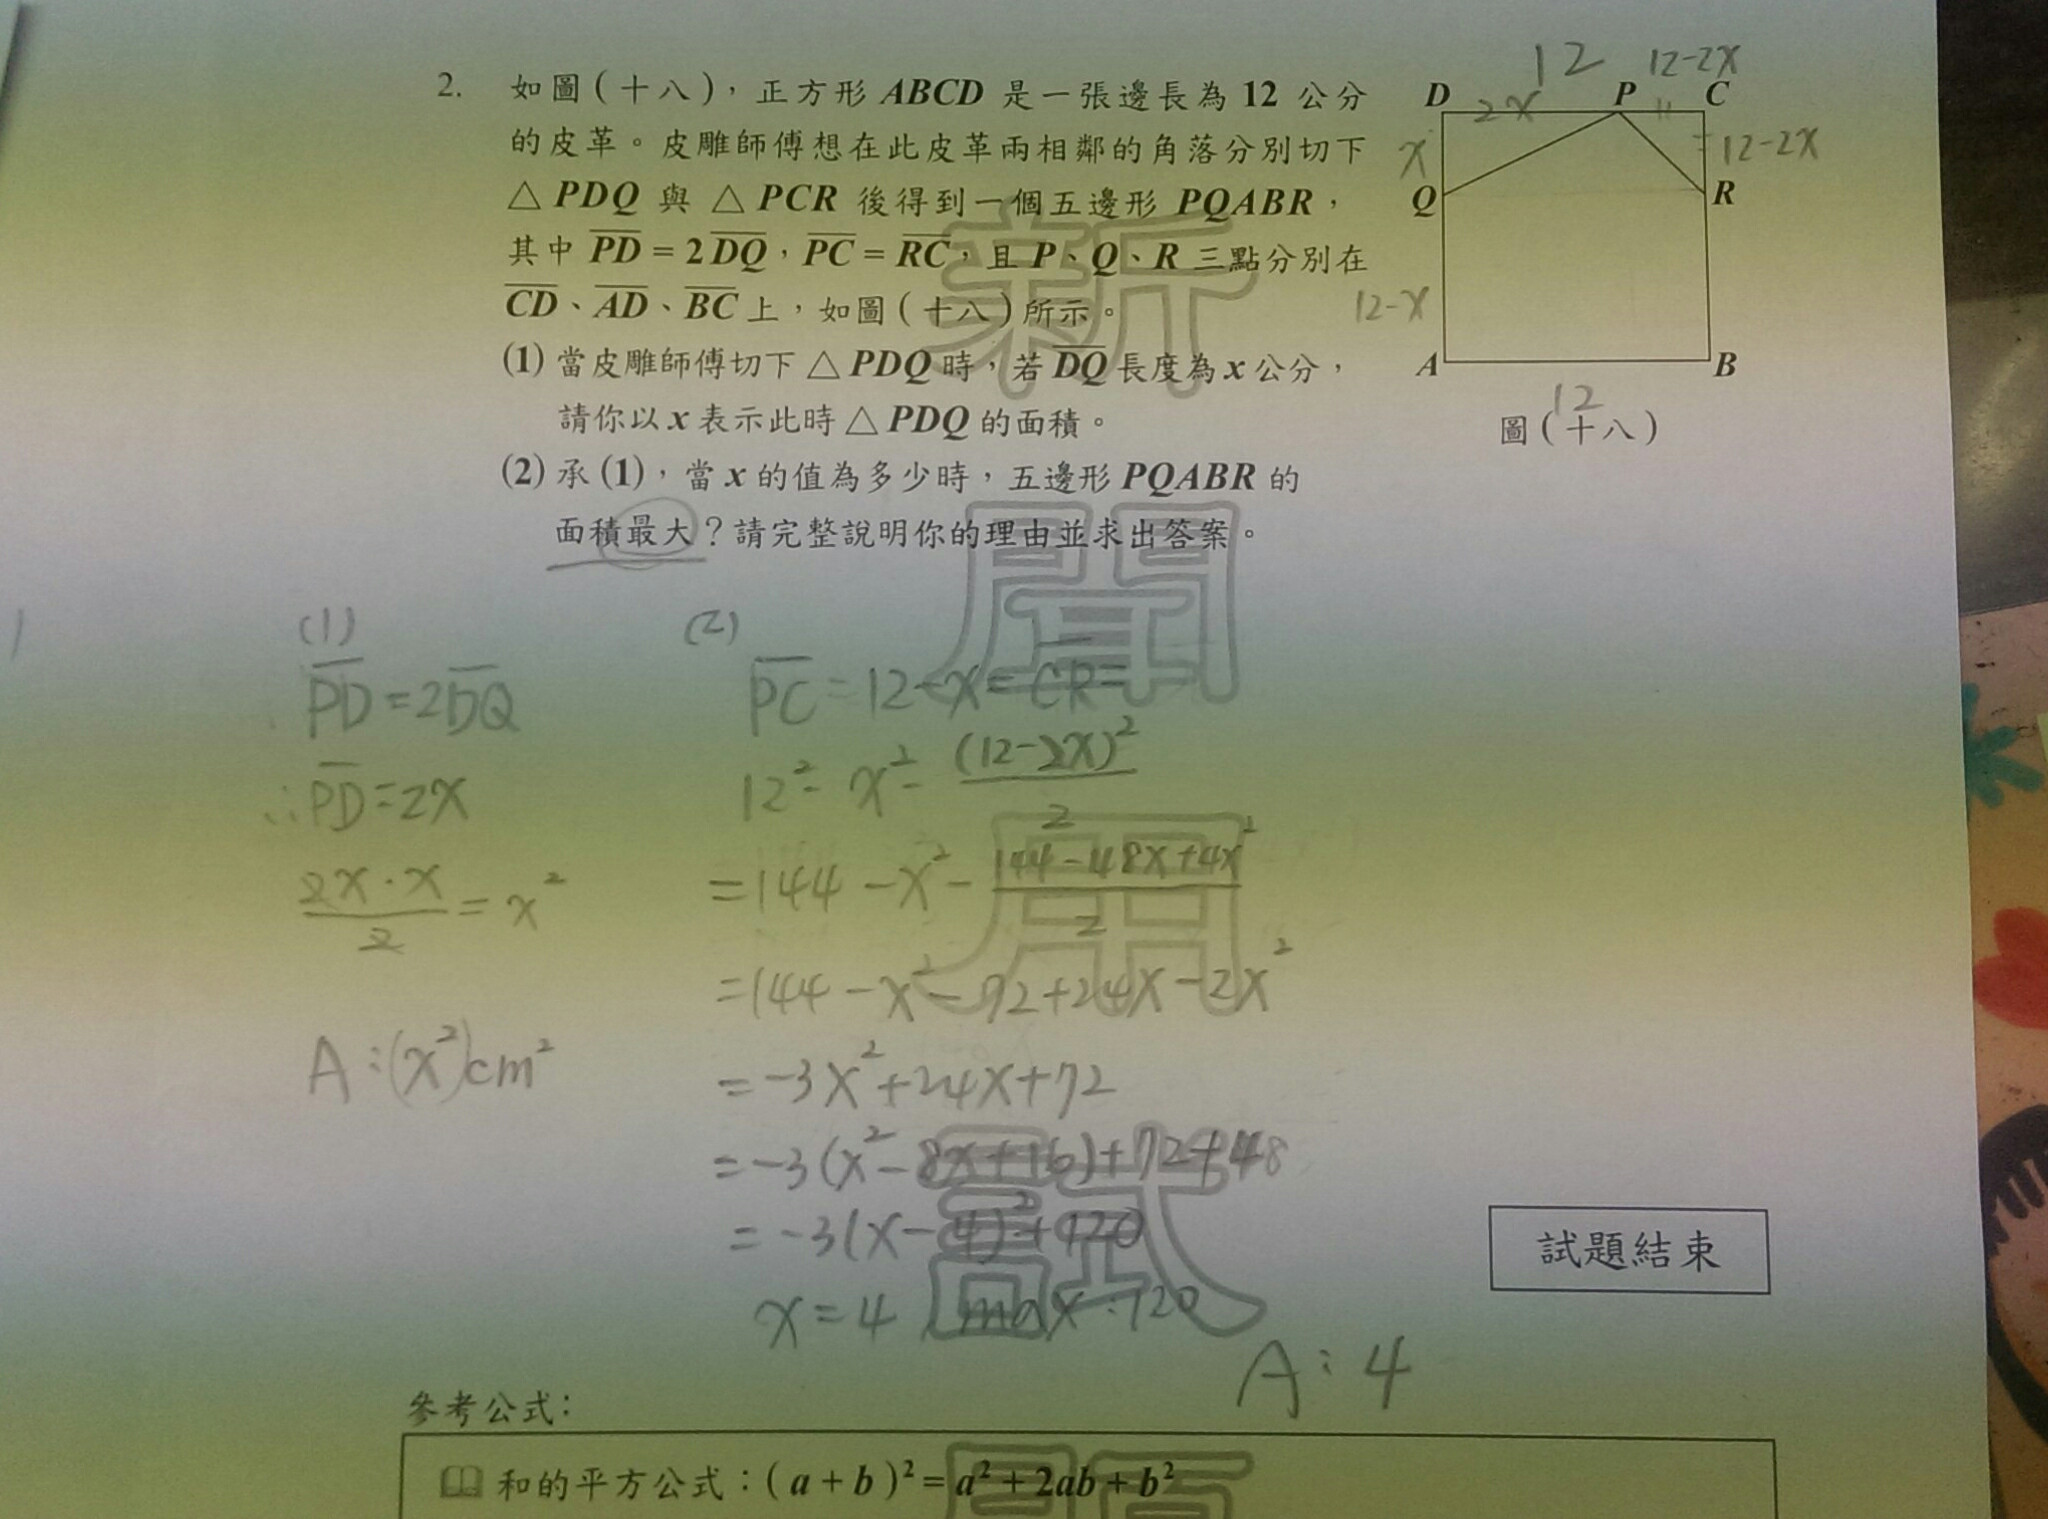 2. 如圖(十八),正方形 ABCD 是一張邊長為 12 公分
的皮革。皮雕師傅想在此皮革兩相鄰的角落分別切下
△PDQ 與 △PCR 後得到一個五邊形 PQABR,
其中 PD = 2DQ,PC = RC,且 P、Q、R 三點分別在
CD、AD、BC 上,如圖(十八)所示。
(1) 當皮雕師傅切下 △PDQ 時,若 DQ 長度為 x 公分,
請你以 x 表示此時 △PDQ 的面積。
(2) 承(1),當 x 的值為多少時,五邊形 PQABR 的
面積最大?請完整說明你的理由並求出答案。
12 12-2x
D 2x P C
x = 12-2x
Q R
12-x
A B
12
圖(十八)
(1)
PD=2DQ
∴PD=2x
2x·x/2=x²
A:(x²)cm²
(2)
PC=12-x=CR=
12²-x²-(12-2x)²/2
=144-x²-144-48x+4x²/2
=144-x²-72+24x-2x²
=-3x²+24x+72
=-3(x²-8x+16)+72+48
=-3(x-4)²+120
x=4, max:120
A:4
試題結束
參考公式:
和的平方公式:(a+b)²=a²+2ab+b²
新
聞
用
試